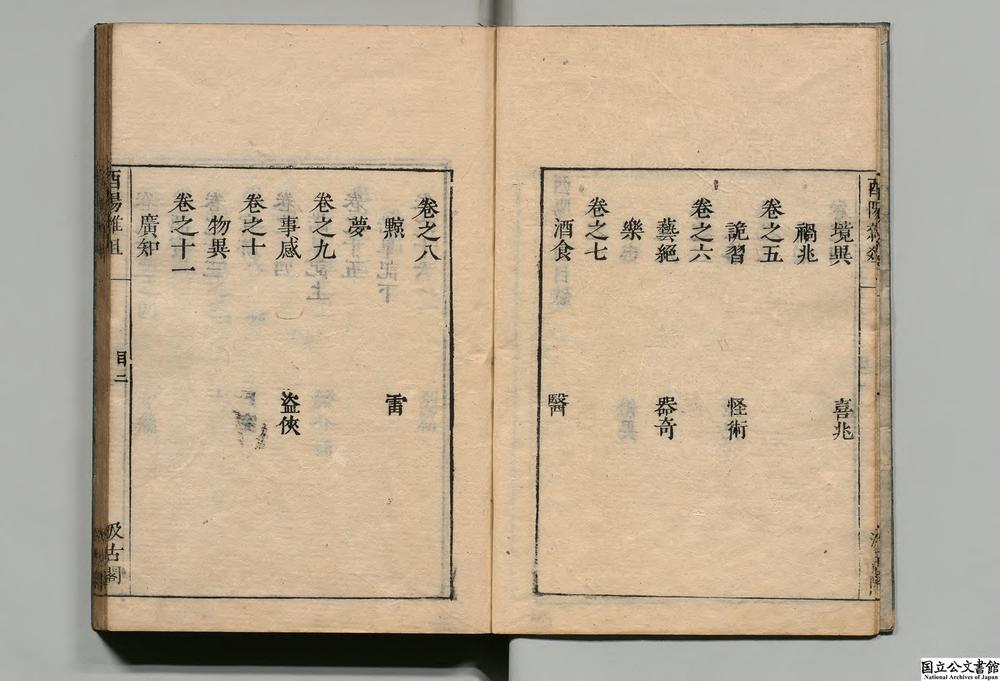 境異　喜兆
禍兆
卷之五
詭習　怪術
卷之六
藝絕　器奇
樂
卷之七
酒食　醫
卷之八
黥　雷
夢
卷之九
事感　盜俠
卷之十
物異
卷之十一
廣知
酉陽雜俎
目二
汲古閣
国立公文書館
National Archives of Japan